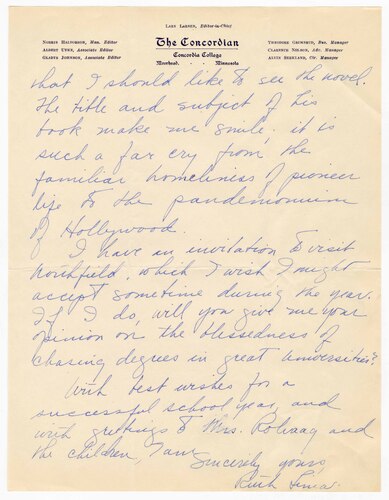 LARS LARSEN, Editor-in-Chief
The Concordian
Concordia College
Moorhead, . . . Minnesota
NORRIS HALVORSON, Man. Editor
ALBERT Associate Editor
GLADYS JOHNSON, Associate Editor
THEODORE Bus. Manager
CLARENCE NELSON, Adv. Manager
ALVIN Cir. Manager
that I should like to see the novel.
The title and subject of his
book make me smile. it is
such a far cry from the
familiar homeliness of pioneer
life to the pandemonium
of Hollywood.
I have an invitation to visit
Northfield, which I wish I might
accept sometime during the year.
If I do, will you give me your
opinion on the blessedness of
chasing degrees in great universities?
With best wishes for a
successful school year, and
with greetings to Mrs. Rolvaag and
the children, I am
Sincerely yours,
Ruth